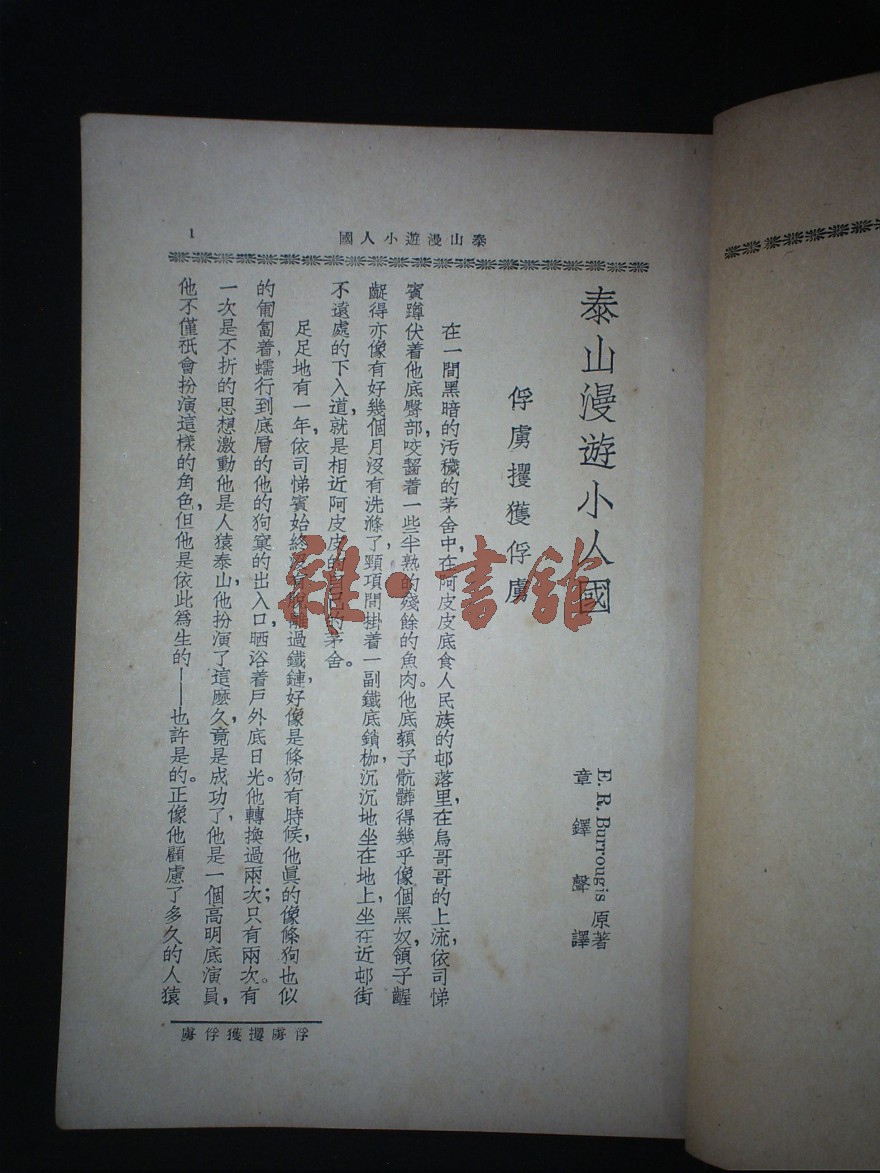 1
泰山漫遊小人國
泰山漫遊小人國
俘虜攫獲俘虜
E. R. Burrougis 原著
章鐸聲譯
在一間黑暗的汚穢的茅舍中，在阿皮皮底食人民族的邨落里，在烏哥哥的上流，依司悌
賓蹲伏着他底臀部，咬齧着一些半熟的殘餘的魚肉。他底頸子骯髒得幾乎像個黑奴，領子齷
齪得亦像有好幾個月沒有洗滌了，頸項間掛着一副鐵底鎖枷，沉沉地坐在地上，坐在近邨街
不遠處的下入道，就是相近阿皮皮的自己的茅舍。
足足地有一年，依司悌賓始終沒有脫離過鐵鏈，好像是條狗，有時候，他眞的像條狗也似
的匍匐着，蠕行到底層的他的狗窠的出入口，晒浴着戶外底日光。他轉換過兩次；只有兩次。有
一次是不折的思想激動他是人猿泰山，他扮演了這麼久，竟是成功了，他是一個高明底演員，
他不僅祇會扮演這樣的角色，但他是依此爲生的——也許是的。正像他顧慮了多久的人猿
俘虜攫獲俘虜
雜·書館